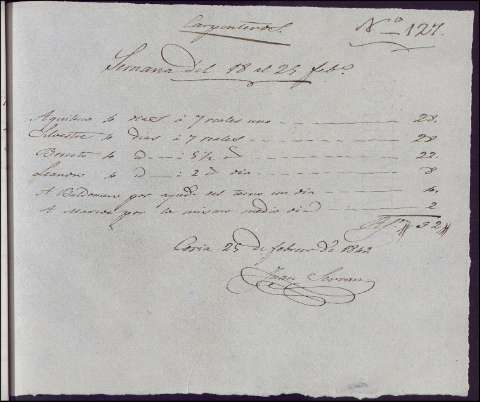 Carpenteros.
Nº 127.
Semana del 18 al 25 febº
Aquilino 4 dias á 7 reales uno 28.
Silvestre 4 dias á 7 reales 28
4 d 5½ 22
Leandro 4 d 2 dia 8
A Baldomero por ayudar un dia 4.
A por lo mismo medio dia 2
92
Coria 25 de febrero de 1842
Juan